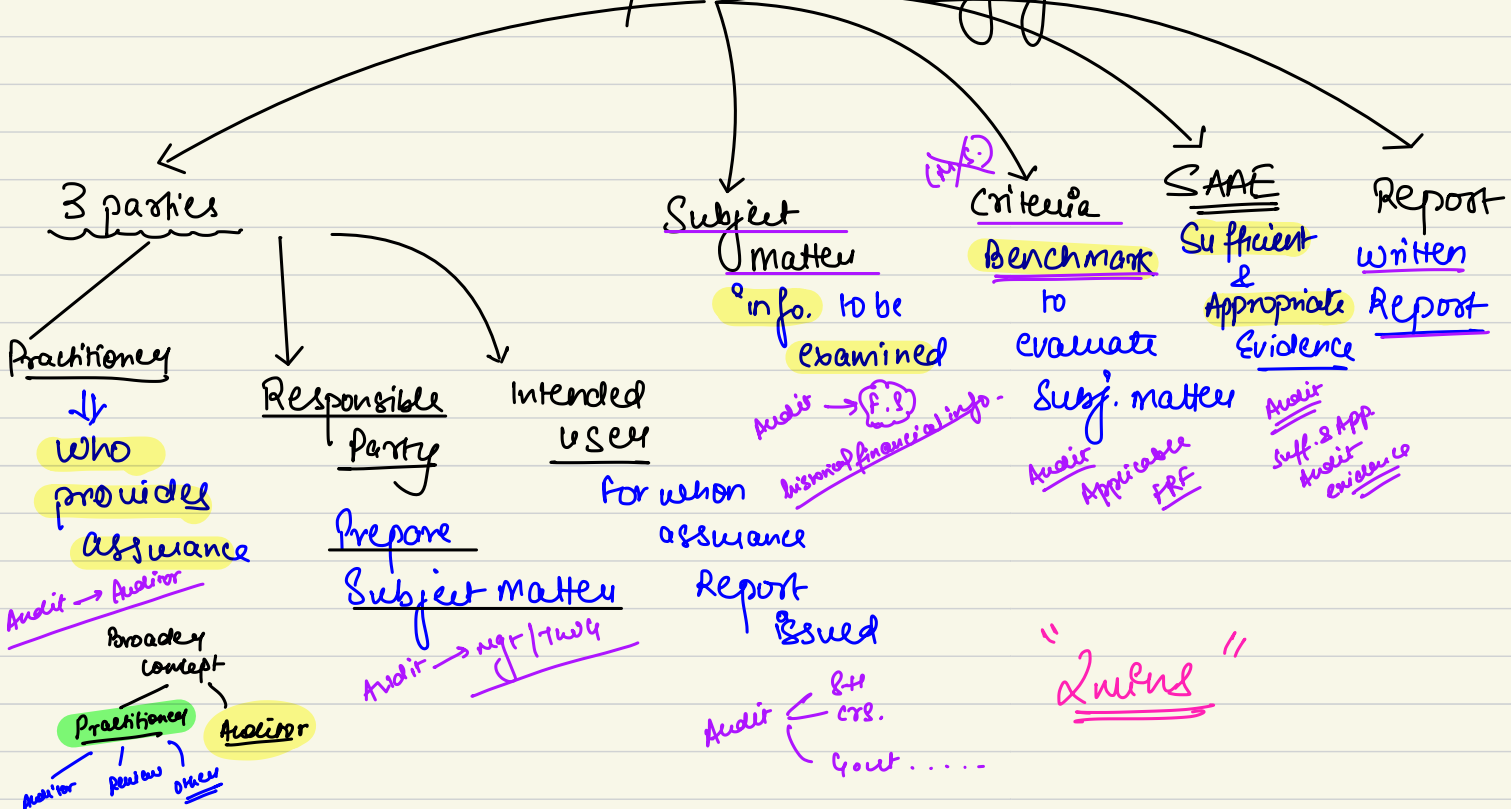 3 parties
Practitioner
who
provides
assurance
Audit → Auditor
Broader
concept
Practitioner
Auditor
Auditor
Review
Other
Responsible
Party
Prepare
Subject Matter
Audit → Mgt/TWCG
Intended
user
for whom
assurance
Report
issued
Audit
SH
Crs.
Govt.....
Subject
matter
info. to be
examined
Audit → F.S
historical financial info.
Criteria
Benchmark
to
evaluate
Subj. matter
Audit
Applicable
FRF
SAAE
Sufficient
&
Appropriate
Evidence
Audit
Suff. & App
Audit
evidence
Report
written
Report
"2mins"